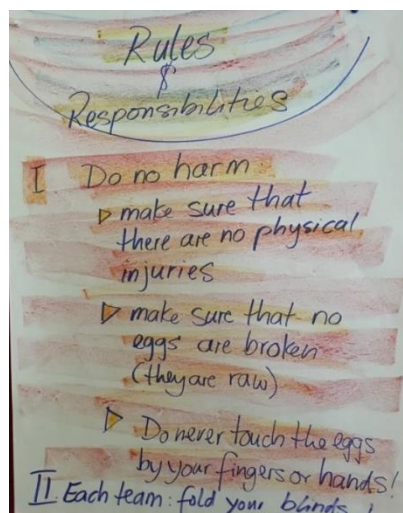 Rules
&
Responsibilities
I Do no harm
▷ make sure that
there are no physical
injuries
▷ make sure that no
eggs are broken
(they are raw)
▷ Do never touch the eggs
by your fingers or hands!
II Each team: fold your blinds !